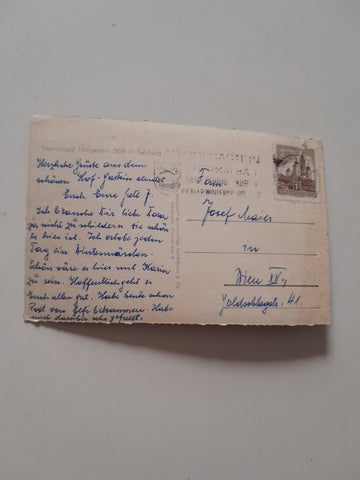 Thermalbad Hofgastein 869 m Salzburg
HOFGASTEIN
THERMALBAD
KUR
IDEALER WINTERSPORT
Herzliche Grüße aus dem
schönen Hof-Gastein sendet
Euch Eure
Ich brauche Dir liebe
ja nicht zu schildern wie schön
es hier ist. Ich erlebe jeden
Tag ein Wintermärchen.
Schön wäre es hier mit Karin
zu sein. Hoffentlich geht es
Euch allen gut. Habe heute schon
Post von bekommen. Habe
mich darüber sehr gefreut.
Fam.
Josef Maier
in
Wien XV.,
Goldschlagstr. 41.